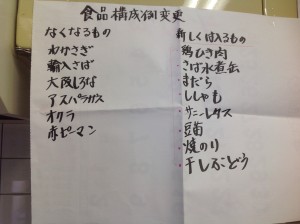 食品構成例変更
なくなるもの
わかさぎ
輸入さば
大阪しろな
アスパラガス
オクラ
赤ピーマン
新しくは入るもの
鶏ひき肉
さば水煮缶
まだら
ししゃも
サニーレタス
豆苗
焼のり
干しぶどう